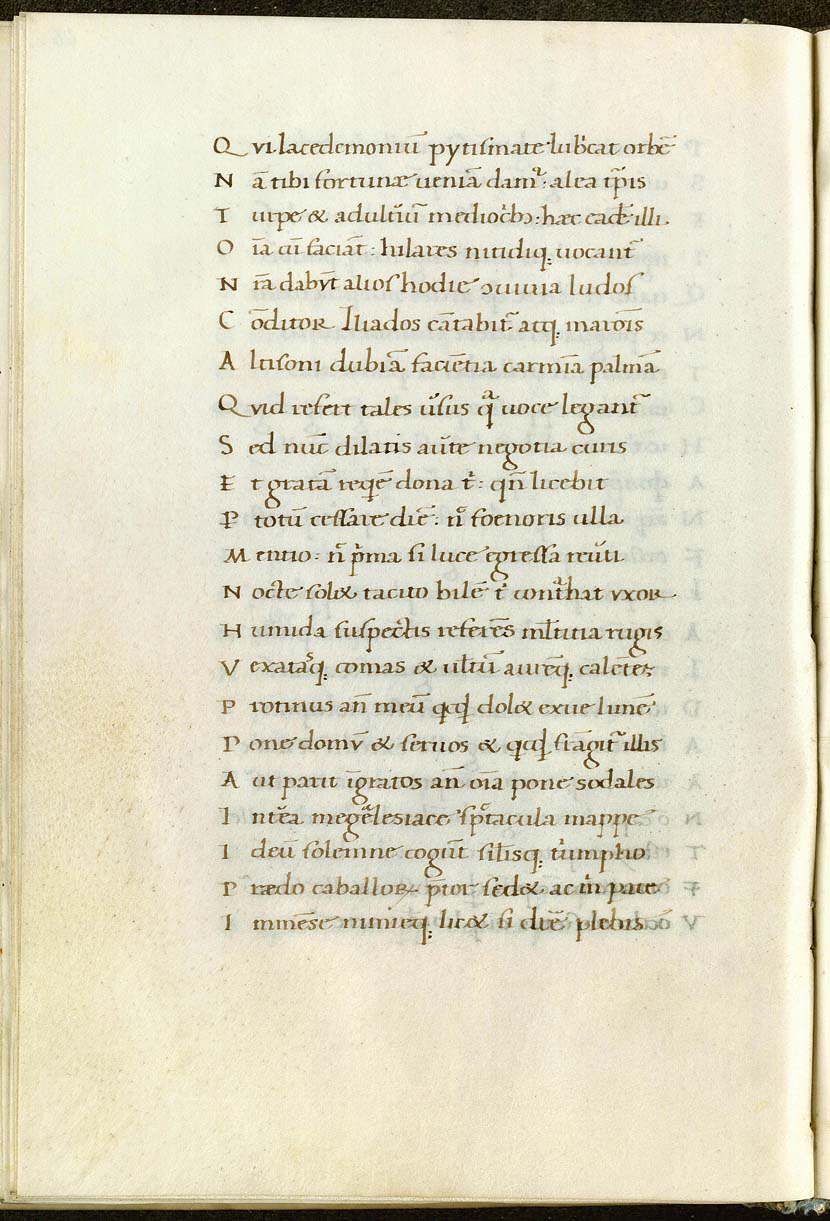 Q vi lacedemoniũ pytismate lub'cat orbẽ
N ã tibi fortunæ ueniã dam᷑: alea t̃pis
T urpe & adult'iũ mediocrib: hæc eadẽ illi
O ĩa cũ faciãt: hilares nitidiq. uocant᷑
N r̃a dabv̄t alios hodie ↄuiuia ludos
C õditor Iliados cãtabit᷑ atq. marõis
A ltisoni dubiã faciẽtia carmĩa palmã
Q vid refert tales ũsus q̃ uoce legant᷑
S ed nũc dilatis aũte negotia curis
E t gratã reqẽ dona t': qñ licebit
P totũ cessare diẽ: ñ foenoris ulla
M entio: ñ p'ma si luce egressa reũti
N octe sol& tacito bilẽ t' cont'hat vxor
H umida suspectis referẽs ml̃titia rugis
V exatasq. comas & ult'ũ aurẽq. calẽtẽ
P rotinus añ meũ qcqd dol& exue limẽ
P one domv & seruos & qcqd frãgit᷑ illis
A ut patit ĩgratos añ oĩa pone sodales
I ntẽa megalesiace sp̃tacula mappe
I deũ solemne cogũt sil̃isq. t'umpho
P rædo caballor p̃tor sed& ac m' pace
I mmẽse nimieq. lic& si dic̃e plebis